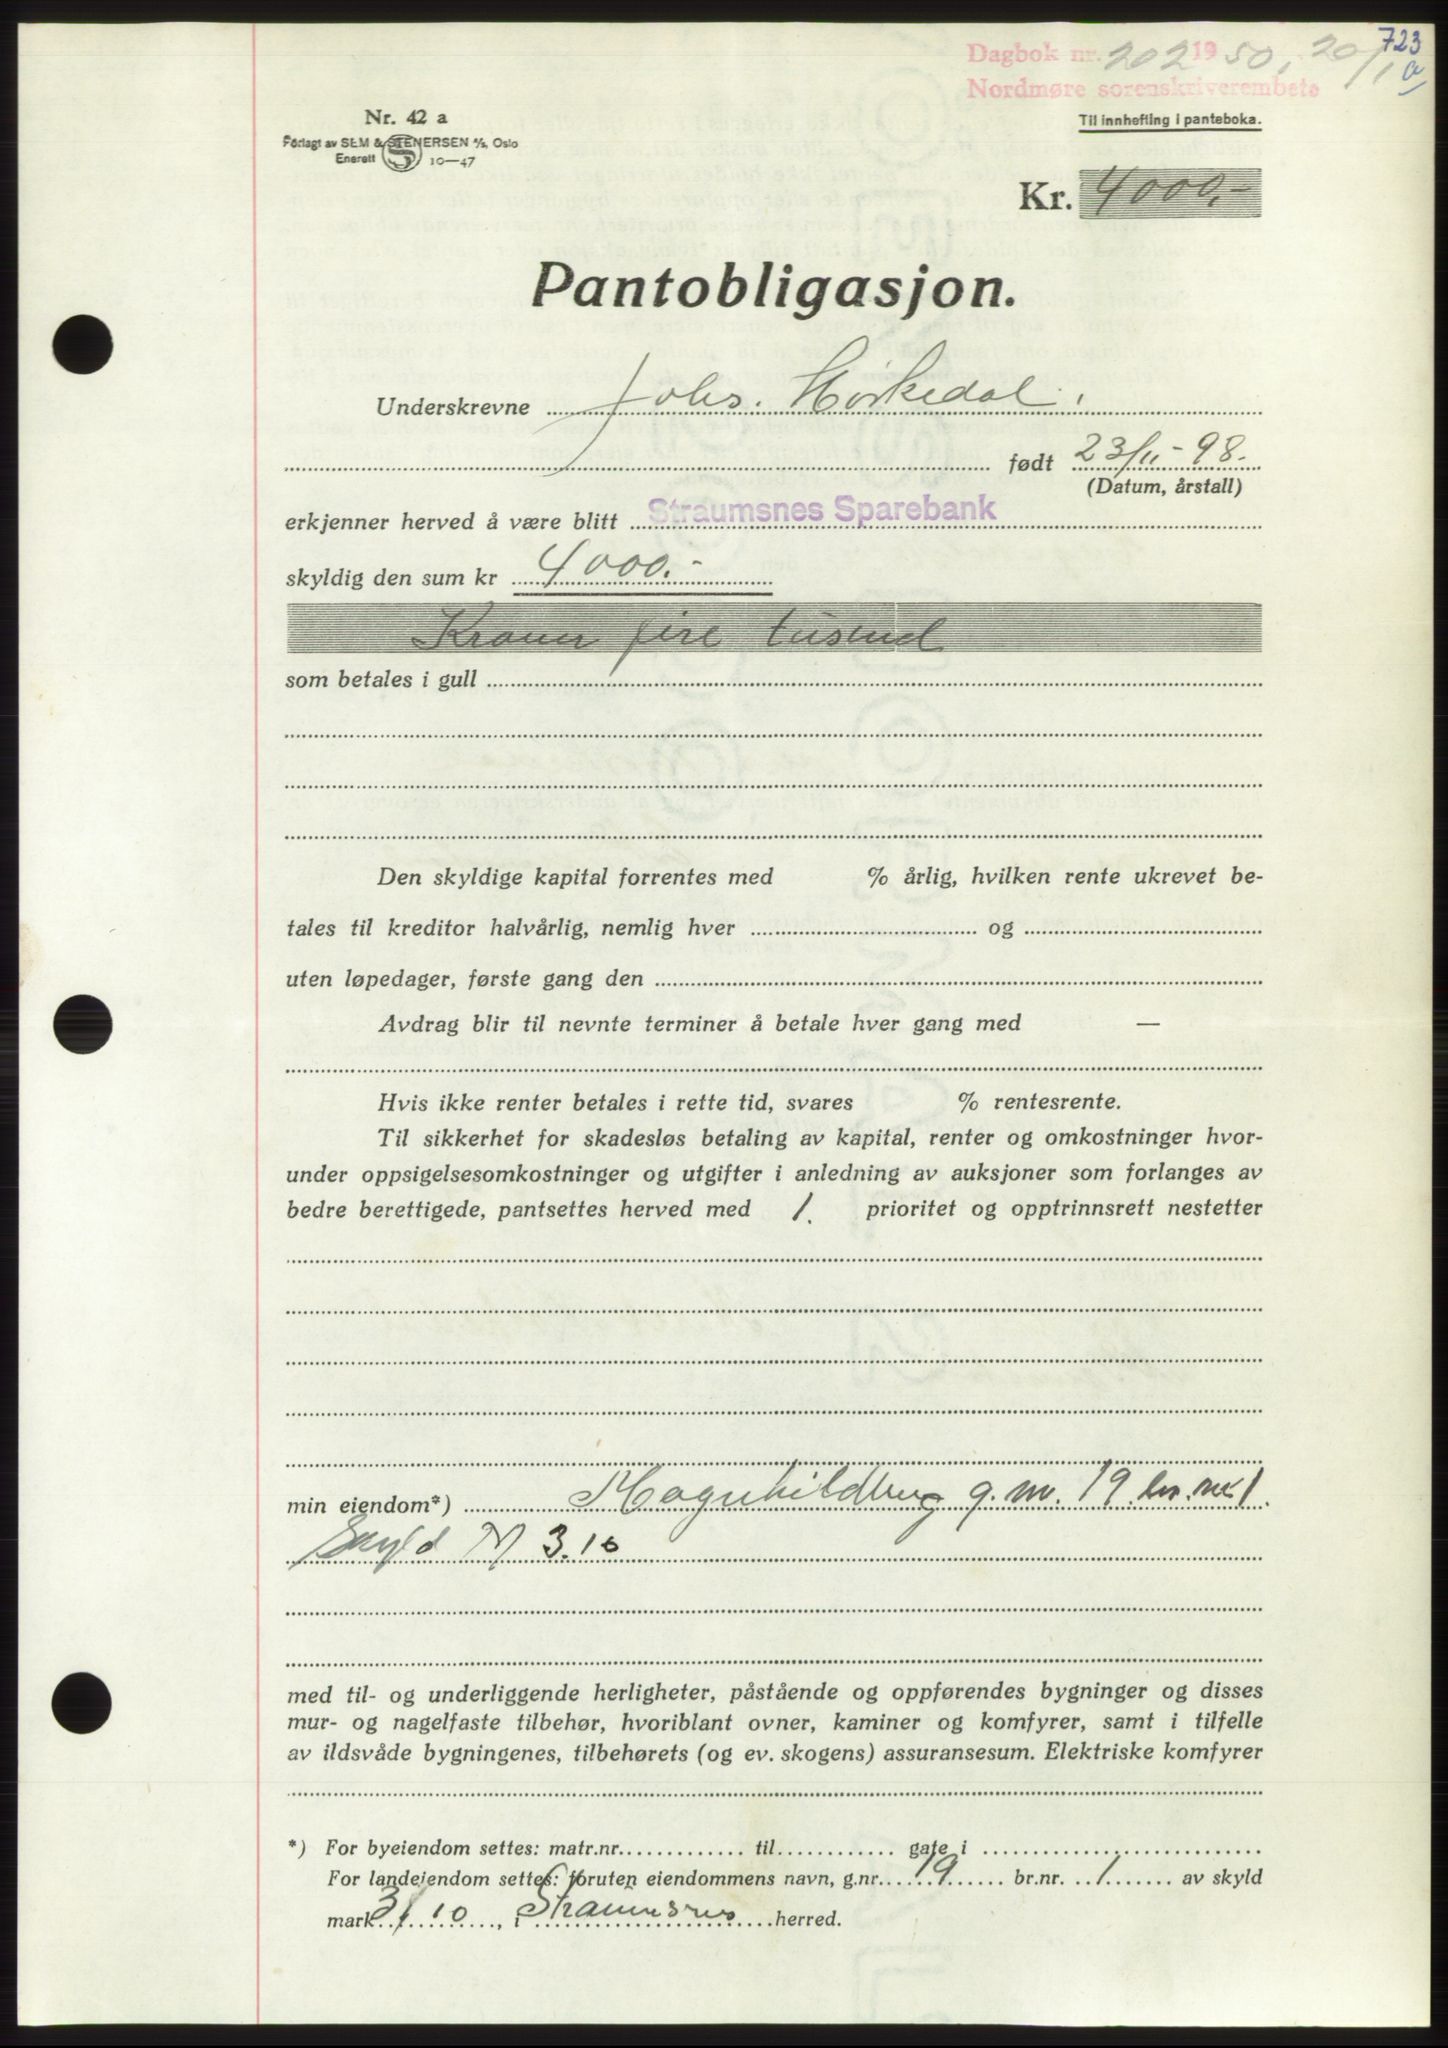 723
a
Dagbok nr. 202 1950, 20/1
Nordmøre sorenskriverembete
Nr. 42 a
Forlagt av SEM & STENERSEN A/S, Oslo
Enerett S 10—47
Til innhefting i panteboka.
Kr. 4000,-
Pantobligasjon.
Underskrevne Johs. Hørkedal,
født 23/11-98.
(Datum, årstall)
erkjenner herved å være blitt Straumsnes Sparebank
skyldig den sum kr 4000.-
Kroner fire tusend
som betales i gull
Den skyldige kapital forrentes med % årlig, hvilken rente ukrevet be-
tales til kreditor halvårlig, nemlig hver og
uten løpedager, første gang den
Avdrag blir til nevnte terminer å betale hver gang med —
Hvis ikke renter betales i rette tid, svares % rentesrente.
Til sikkerhet for skadesløs betaling av kapital, renter og omkostninger hvor-
under oppsigelsesomkostninger og utgifter i anledning av auksjoner som forlanges av
bedre berettigede, pantsettes herved med 1. prioritet og opptrinnsrett nestetter
min eiendom*) Magnhildberg g.nr. 19 br.nr. 1.
Skyld M 3.10
med til- og underliggende herligheter, påstående og oppførendes bygninger og disses
mur- og nagelfaste tilbehør, hvoriblant ovner, kaminer og komfyrer, samt i tilfelle
av ildsvåde bygningenes, tilbehørets (og ev. skogens) assuransesum. Elektriske komfyrer
*) For byeiendom settes: matr.nr. til gate i
For landeiendom settes: foruten eiendommens navn, g.nr. 19 br.nr. 1 av skyld
mark 3/10, i Straumsnes herred.